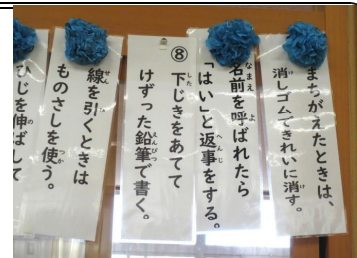 まちがえたときは、
消しゴムできれいに消す。
名前を呼ばれたら
「はい」と返事をする。
⑧
下じきをあてて
けずった鉛筆で書く。
線を引くときは
ものさしを使う。
ひじを伸ばして